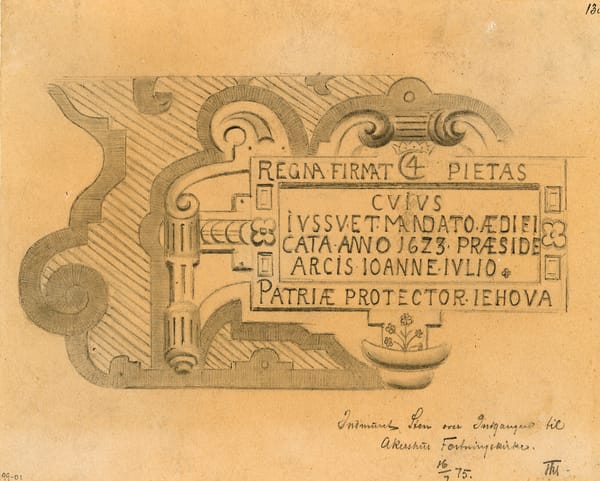 REGNA FIRMAT C4 PIETAS
CVIVS
IVSSV·ET·MANDATO·ÆDIFI
CATA·ANNO 1623·PRÆSIDE
ARCIS·IOANNE·IVLIO
PATRIÆ PROTECTOR·IEHOVA
Indmuret Sten over Indgangen til
Akershus Fæstningskirke.
16/7 75.
99-01